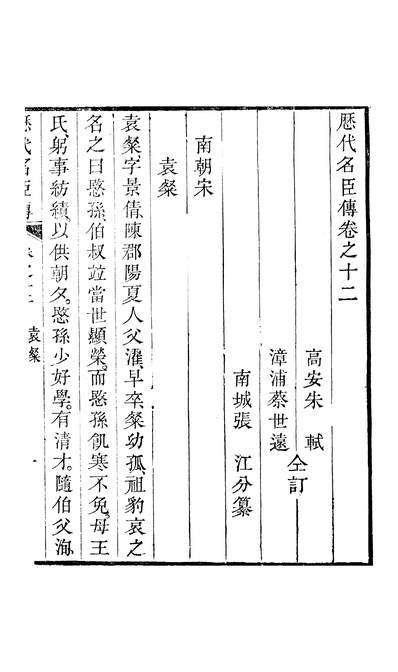 歷代名臣傳卷之十二
高安朱　軾
漳浦蔡世遠
仝訂
南城張　江分纂
南朝宋
袁粲
袁粲、字景倩、陳郡陽夏人、父濯、早卒、粲幼孤、祖豹哀之、
名之曰愍孫、伯叔竝當世顯榮。而愍孫飢寒不免。母王
氏、躬事紡績、以供朝夕。愍孫少好學。有清才。隨伯父洵、
歷代名臣傳
袁粲
一